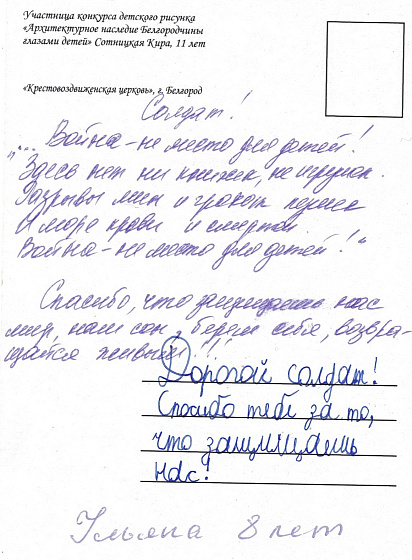 Участница конкурса детского рисунка
«Архитектурное наследие Белгородчины
глазами детей» Сотницкая Кира, 11 лет
«Крестовоздвиженская церковь», г. Белгород
Солдат!
"... Война - не место для детей!
Здесь нет ни книжек, не игрушек.
Разрывы мин и грохот пушек
И море крови и смертей.
Война - не место для детей!"
Спасибо, что защищаешь нас
мир, наш сон, береги себя, возвра-
щайся живым!!!
Дорогой солдат!
Спасибо тебе за то,
что защищаешь
нас!
Ульяна 8 лет